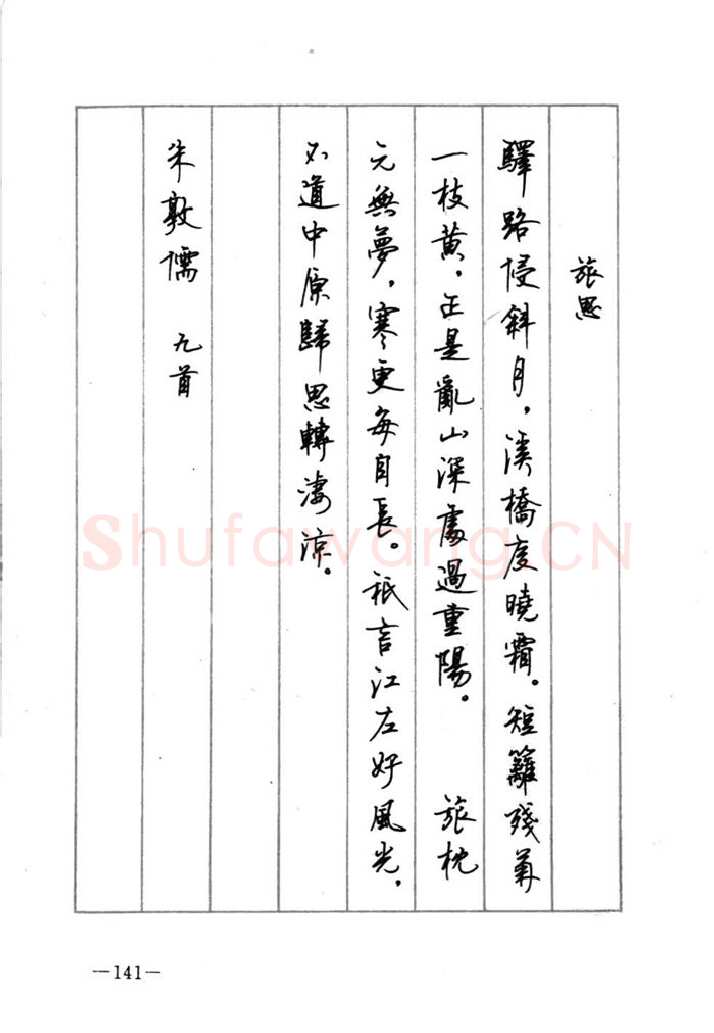 旅思
驛路侵斜月，溪橋度曉霜。短籬殘菊
一枝黄。正是亂山深處過重陽。 旅枕
元無夢，寒更每自長。祇言江左好風光，
不道中原歸思轉淒涼。
朱敦儒 九首
ShufawangCN
—141—